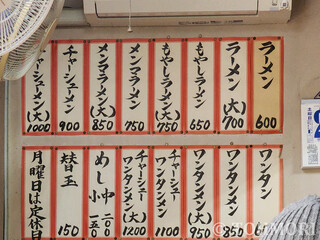 ラーメン 600
ラーメン(大) 700
もやしラーメン 650
もやしラーメン(大) 750
メンマラーメン 750
メンマラーメン(大) 850
チャーシューメン 900
チャーシューメン(大) 1000
ワンタン
ワンタンメン 850
ワンタンメン(大) 950
チャーシューワンタンメン 1100
チャーシューワンタンメン(大) 1200
めし 中 二〇〇 小 一五〇
替玉 150
月曜日は定休日